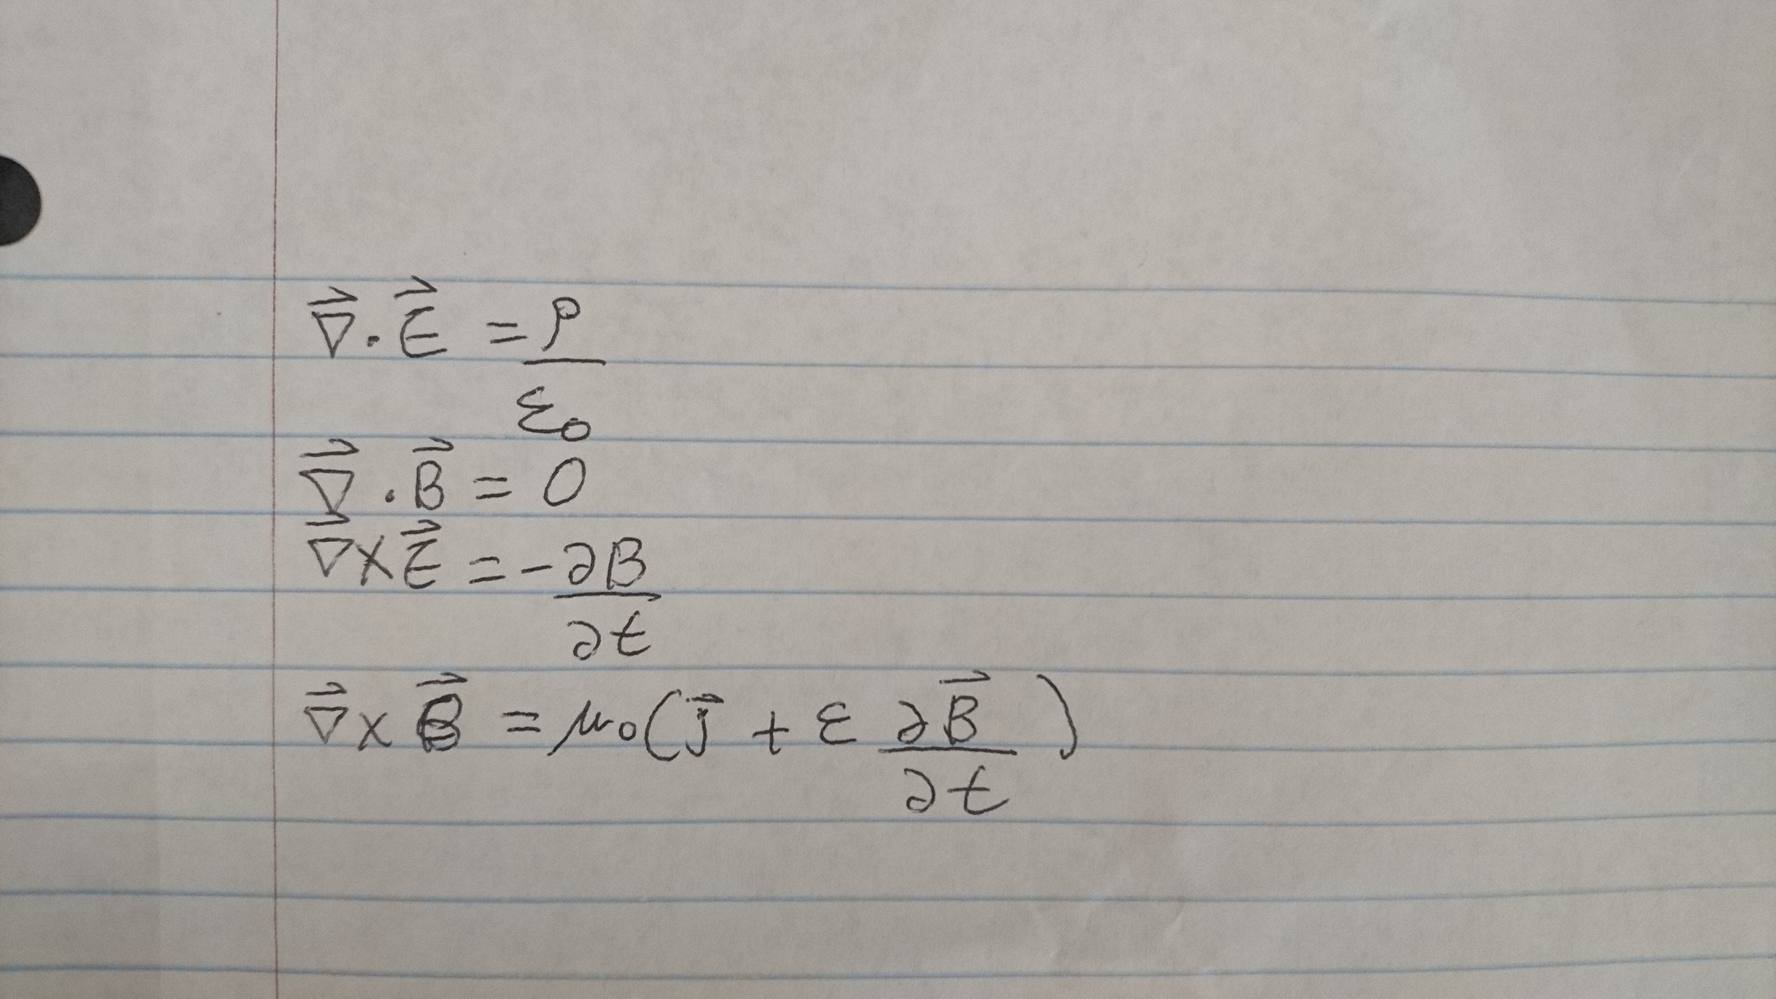 ∇⃗ · E⃗ = ρ/ε₀
∇⃗ · B⃗ = 0
∇⃗ × E⃗ = -∂B/∂t
∇⃗ × B⃗ = μ₀(J⃗ + ε ∂B⃗/∂t)